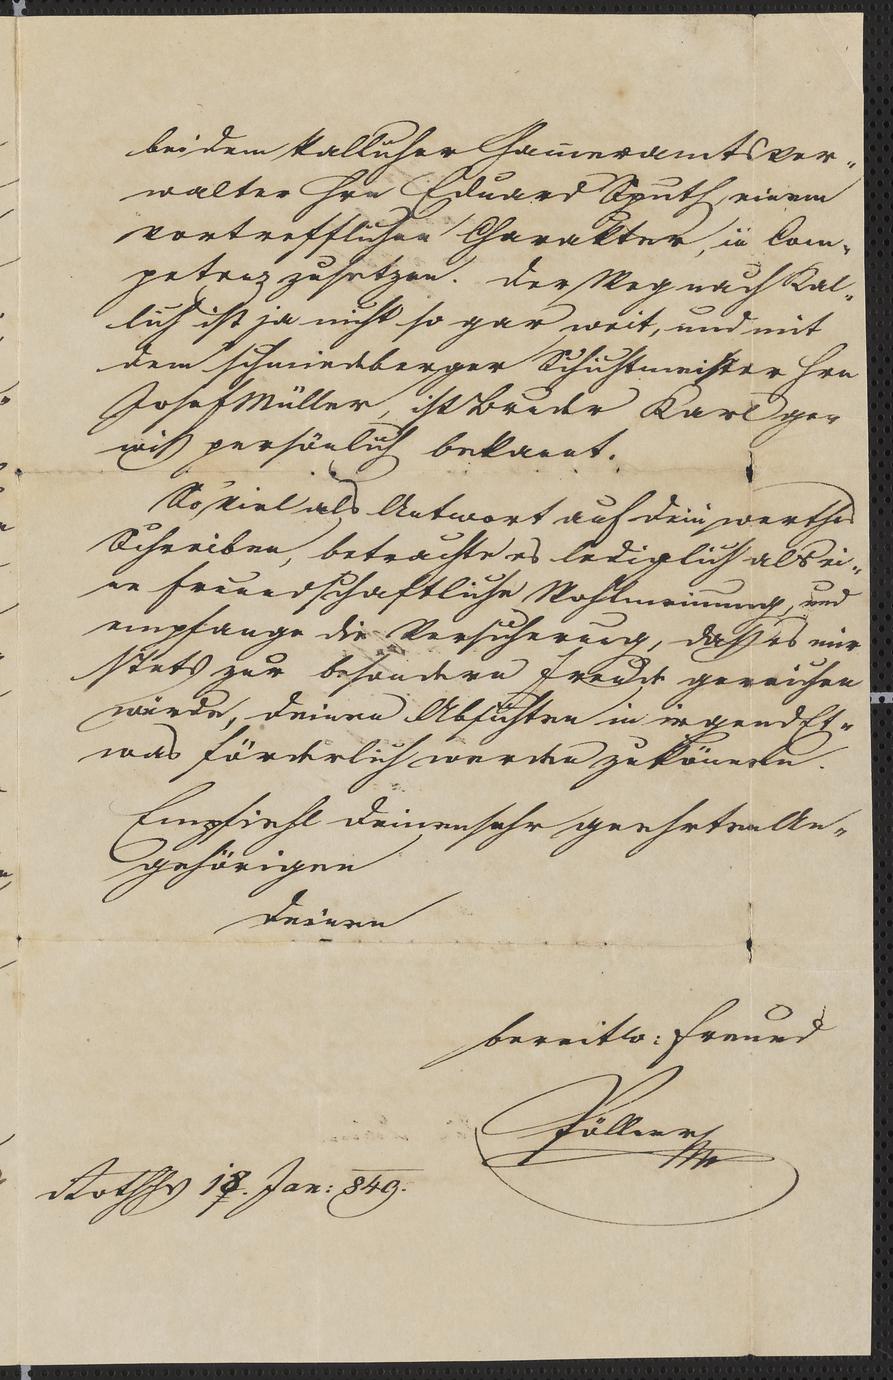 bei dem Kallicher Hameramtsver-
walter Hrn Eduard Sputh, einem
vortrefflichen Charakter, in Com-
petenz zu setzen. Der Weg nach Kal-
lich ist ja nicht so gar weit, und mit
dem Schmiedeberger Schichtmeister Hrn
Josef Müller, ist Bruder Karl ge-
wiß persönlich bekannt.
So viel als Antwort auf dein werthes
Schreiben, betrachte es lediglich als ei-
ne freundschaftliche Wohlmeinung, und
empfange die Versicherung, daß es mir
stets zur besondern Freude gereichen
würde, deinen Absichten in irgend Et-
was förderlich werden zu können.
Empfiehl deinen sehr geehrten An-
gehörigen
deinen
bereitw: Freund
18. Jan: 849.